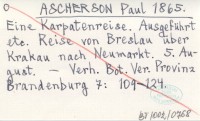 O ASCHERSON Paul 1865.
Eine Karpatenreise. Ausgeführt
etc. Reise von Breslau über
Krakau nach Neumarkt. 5. Au-
gust. — Verh. Bot. Ver. Provinz
Brandenburg 7: 109-124.
BT/002/0768